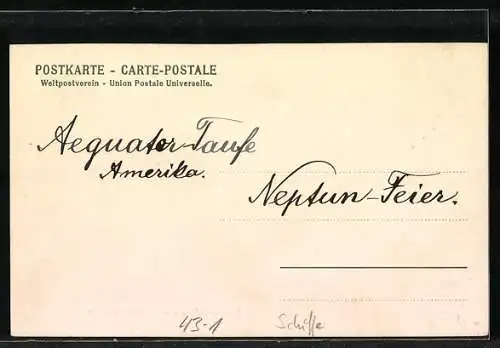 POSTKARTE - CARTE-POSTALE
Weltpostverein - Union Postale Universelle.
Aequator-Taufe
Amerika.
Neptun-Feier.
43-1
Schiffe